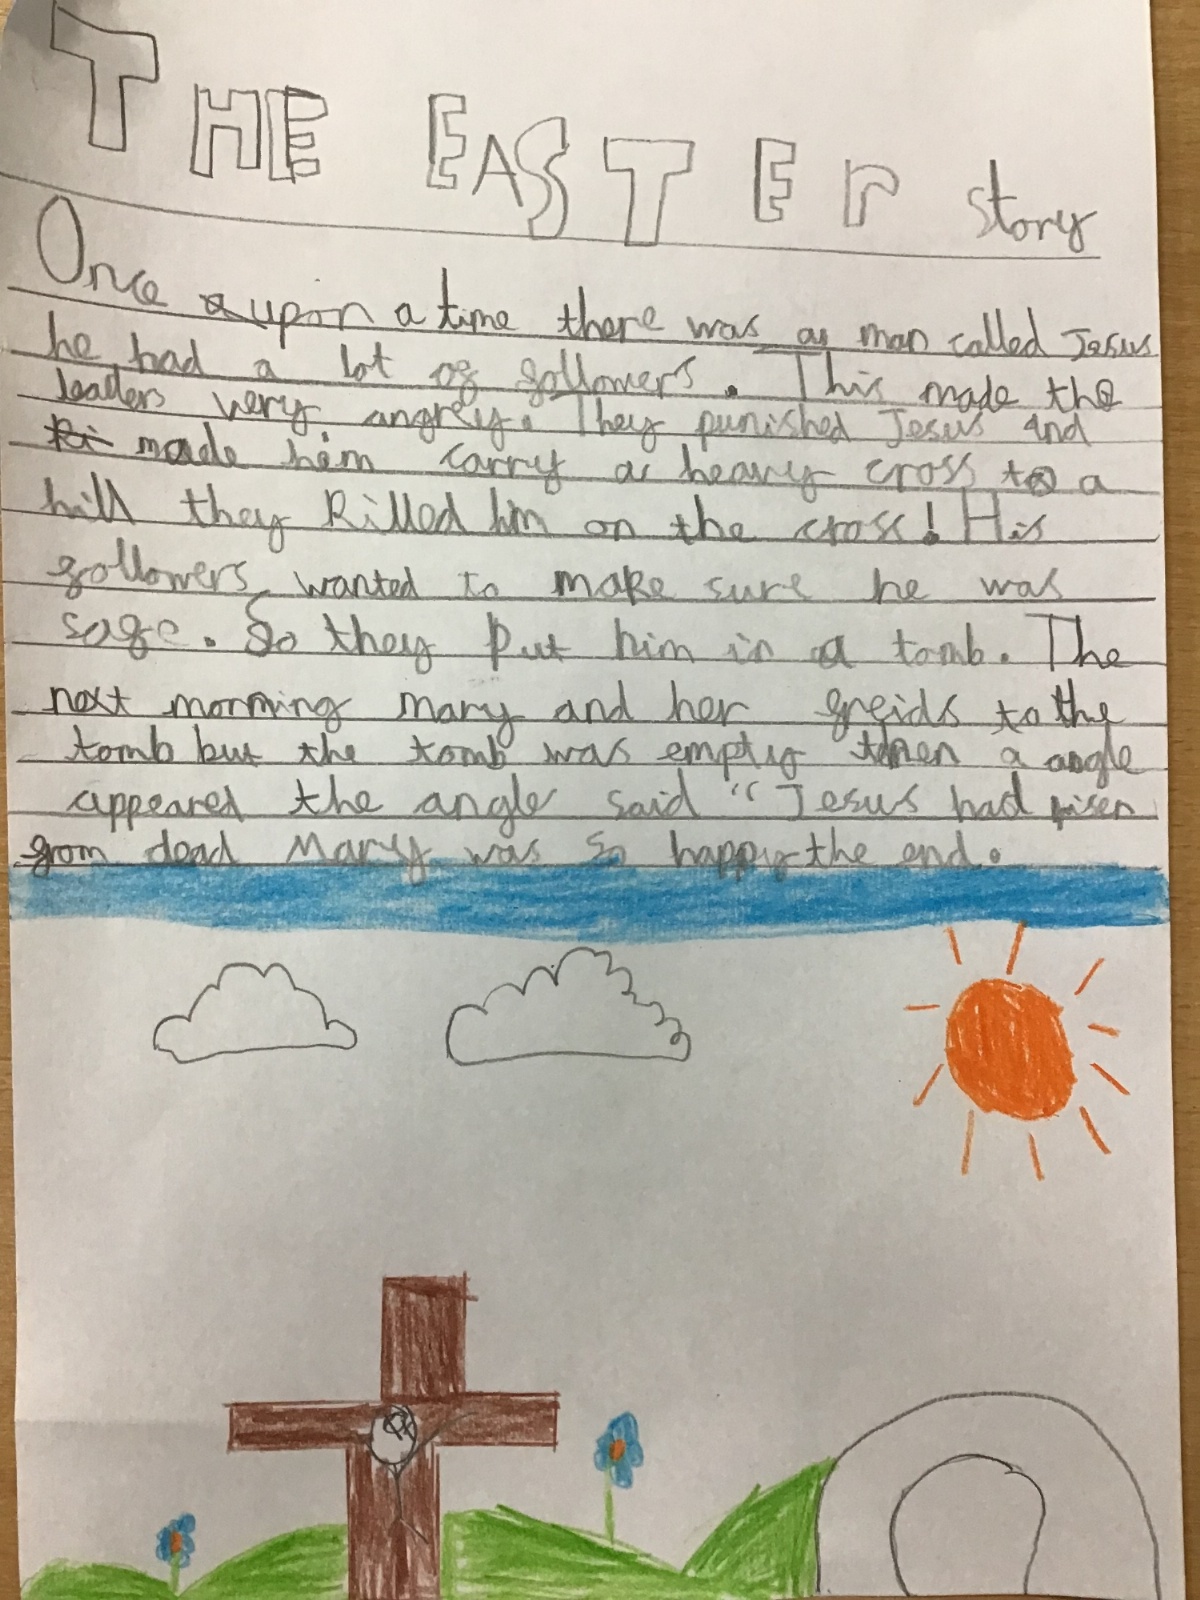 THE EASTEr story
Once upon a time there was a man called Jesus
he had a lot of followers. This made the
leaders very angrey. They punished Jesus and
made him carry a heavy cross to a
hill they killed him on the cross! His
followers wanted to make sure he was
safe. So they put him in a tomb. The
next morning Mary and her freids to the
tomb but the tomb was empty then a angle
appeared the angle said "Jesus had risen
from dead Mary was so happy the end.